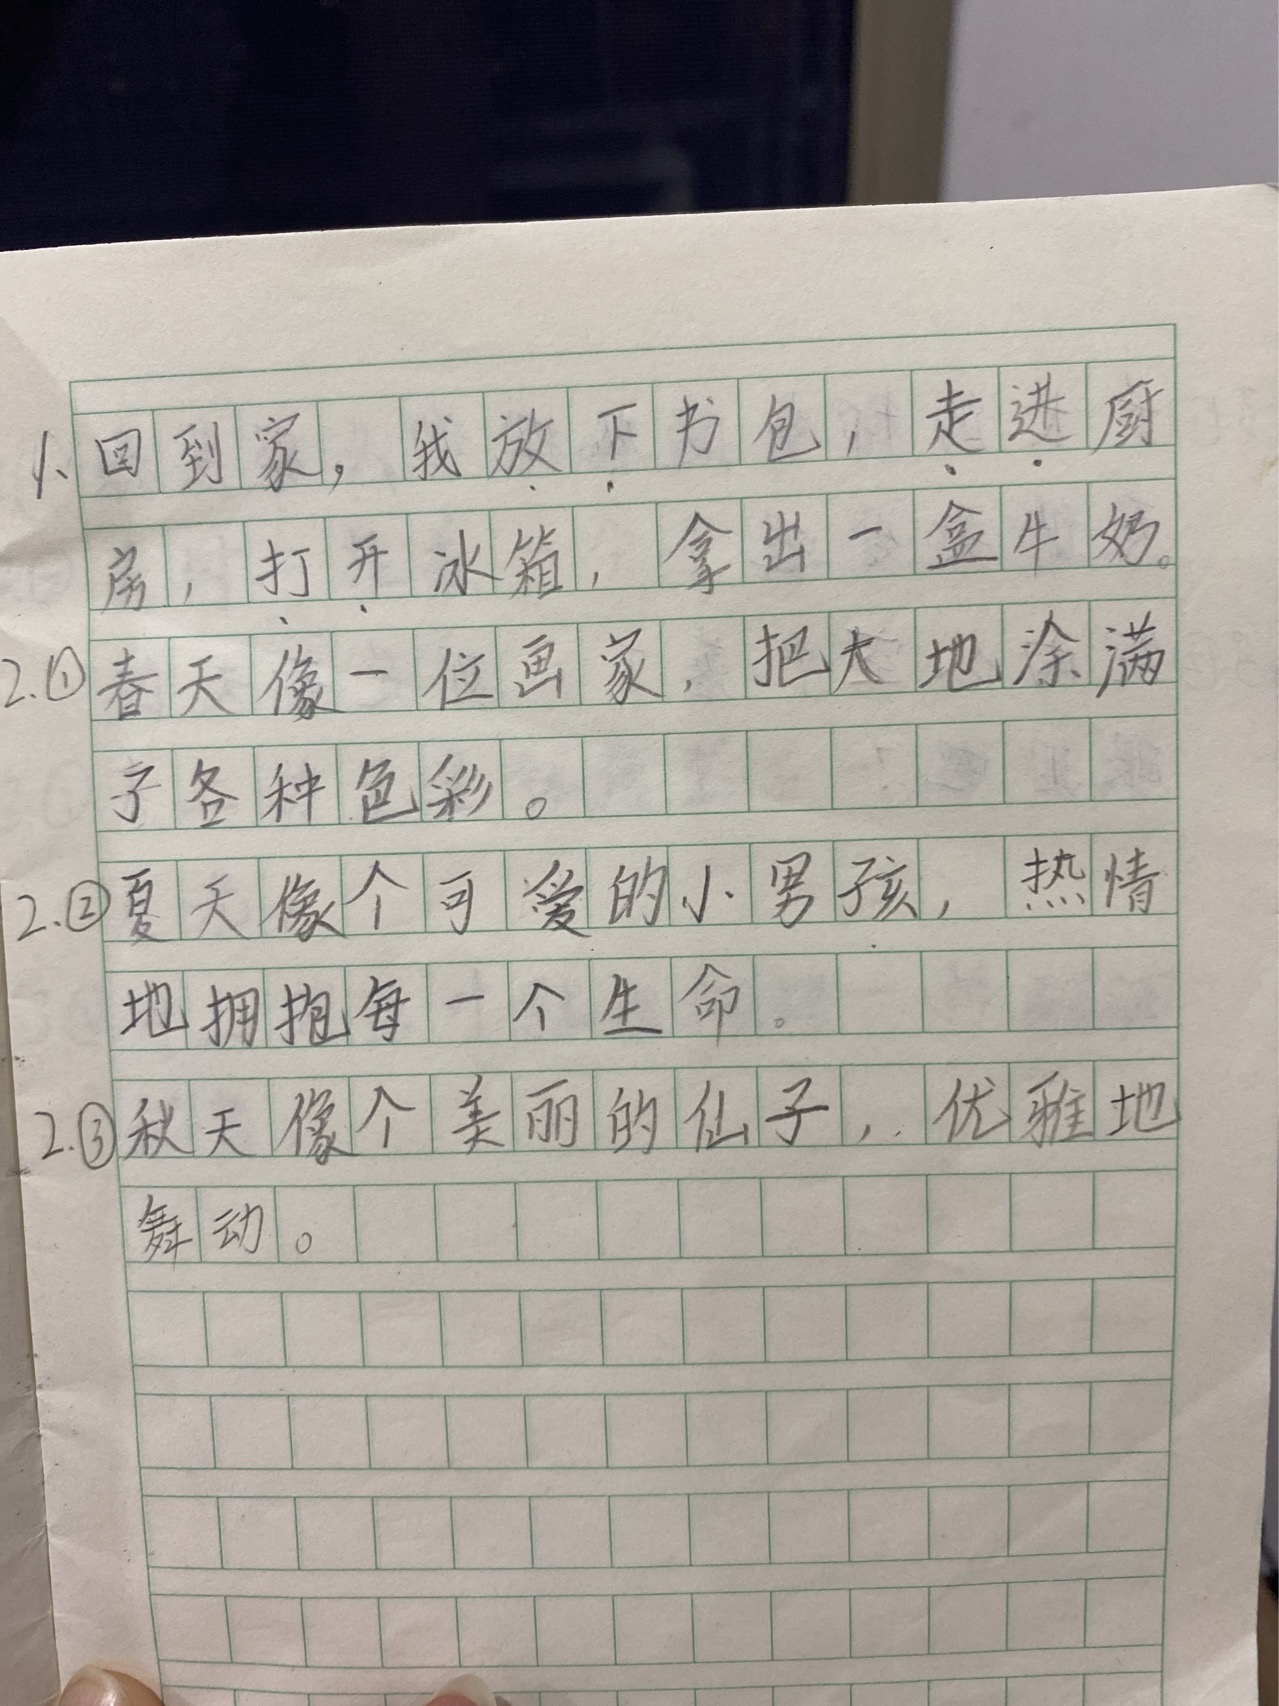 1、回到家，我放下书包，走进厨
房，打开冰箱，拿出一盒牛奶。
2.①春天像一位画家，把大地涂满
了各种色彩。
2.②夏天像个可爱的小男孩，热情
地拥抱每一个生命。
2.③秋天像个美丽的仙子，优雅地
舞动。